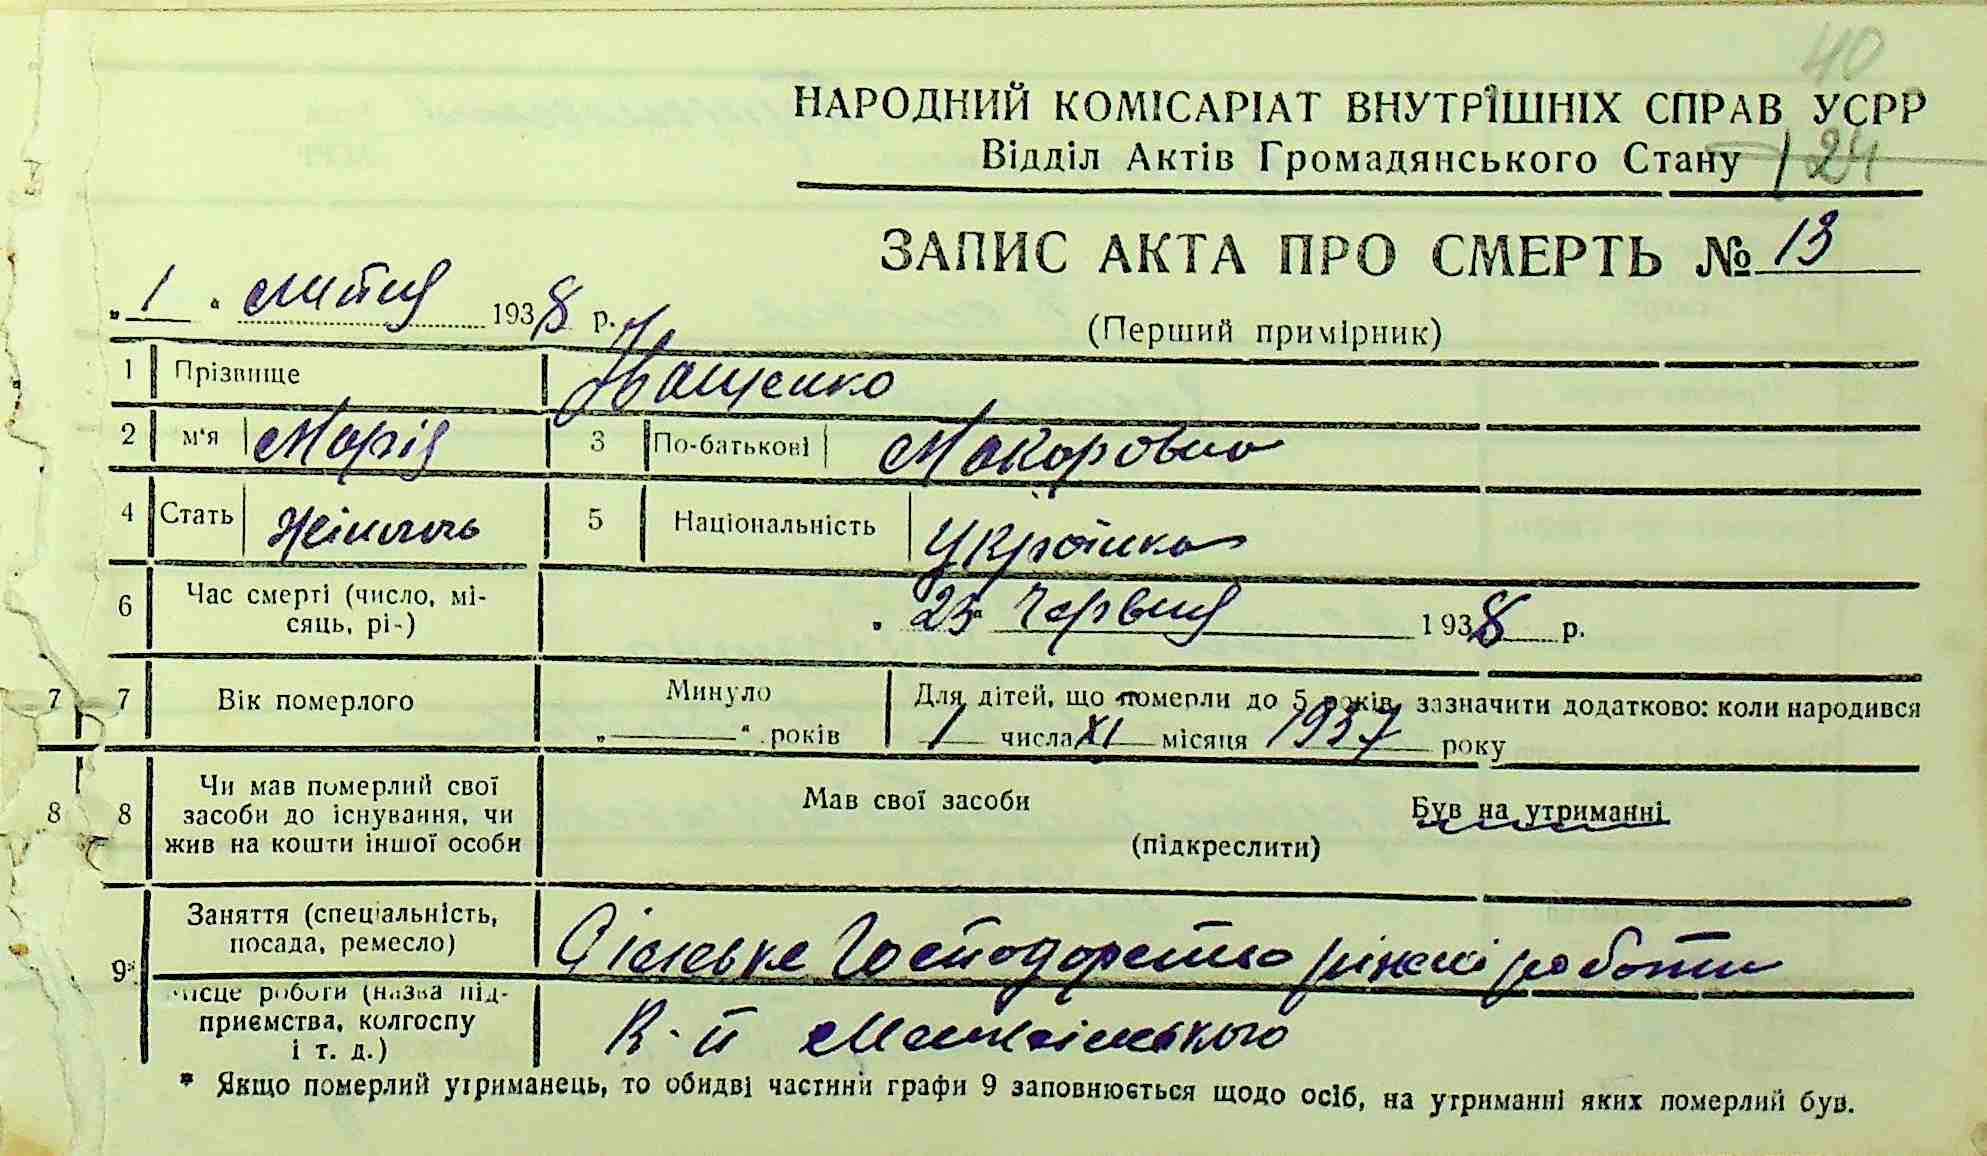 40
НАРОДНИЙ КОМІСАРІАТ ВНУТРІШНІХ СПРАВ УСРР
Відділ Актів Громадянського Стану 124
ЗАПИС АКТА ПРО СМЕРТЬ № 13
„ 1 “ лютня 1938 р.
(Перший примірник)
1 Прізвище Іващенко
2 м'я Марія 3 По-батькові Макоровна
4 Стать жіноча 5 Національність Українка
6 Час смерті (число, мі-
сяць, рі-) „ 25 “ Червня 1938 р.
7 7 Вік померлого Минуло Для дітей, що померли до 5 років, зазначити додатково: коли народився
„ “ років 1 числа XI місяця 1937 року
8 8 Чи мав померлий свої
засоби до існування, чи
жив на кошти іншої особи
Мав свої засоби Був на утриманні
(підкреслити)
9* Заняття (спеціальність,
посада, ремесло) Сільське Господорство ріжні роботи
місце роботи (назва під-
приємства, колгоспу
і т. д.) К-п
* Якщо померлий утриманець, то обидві частини графи 9 заповнюється щодо осіб, на утриманні яких померлий був.